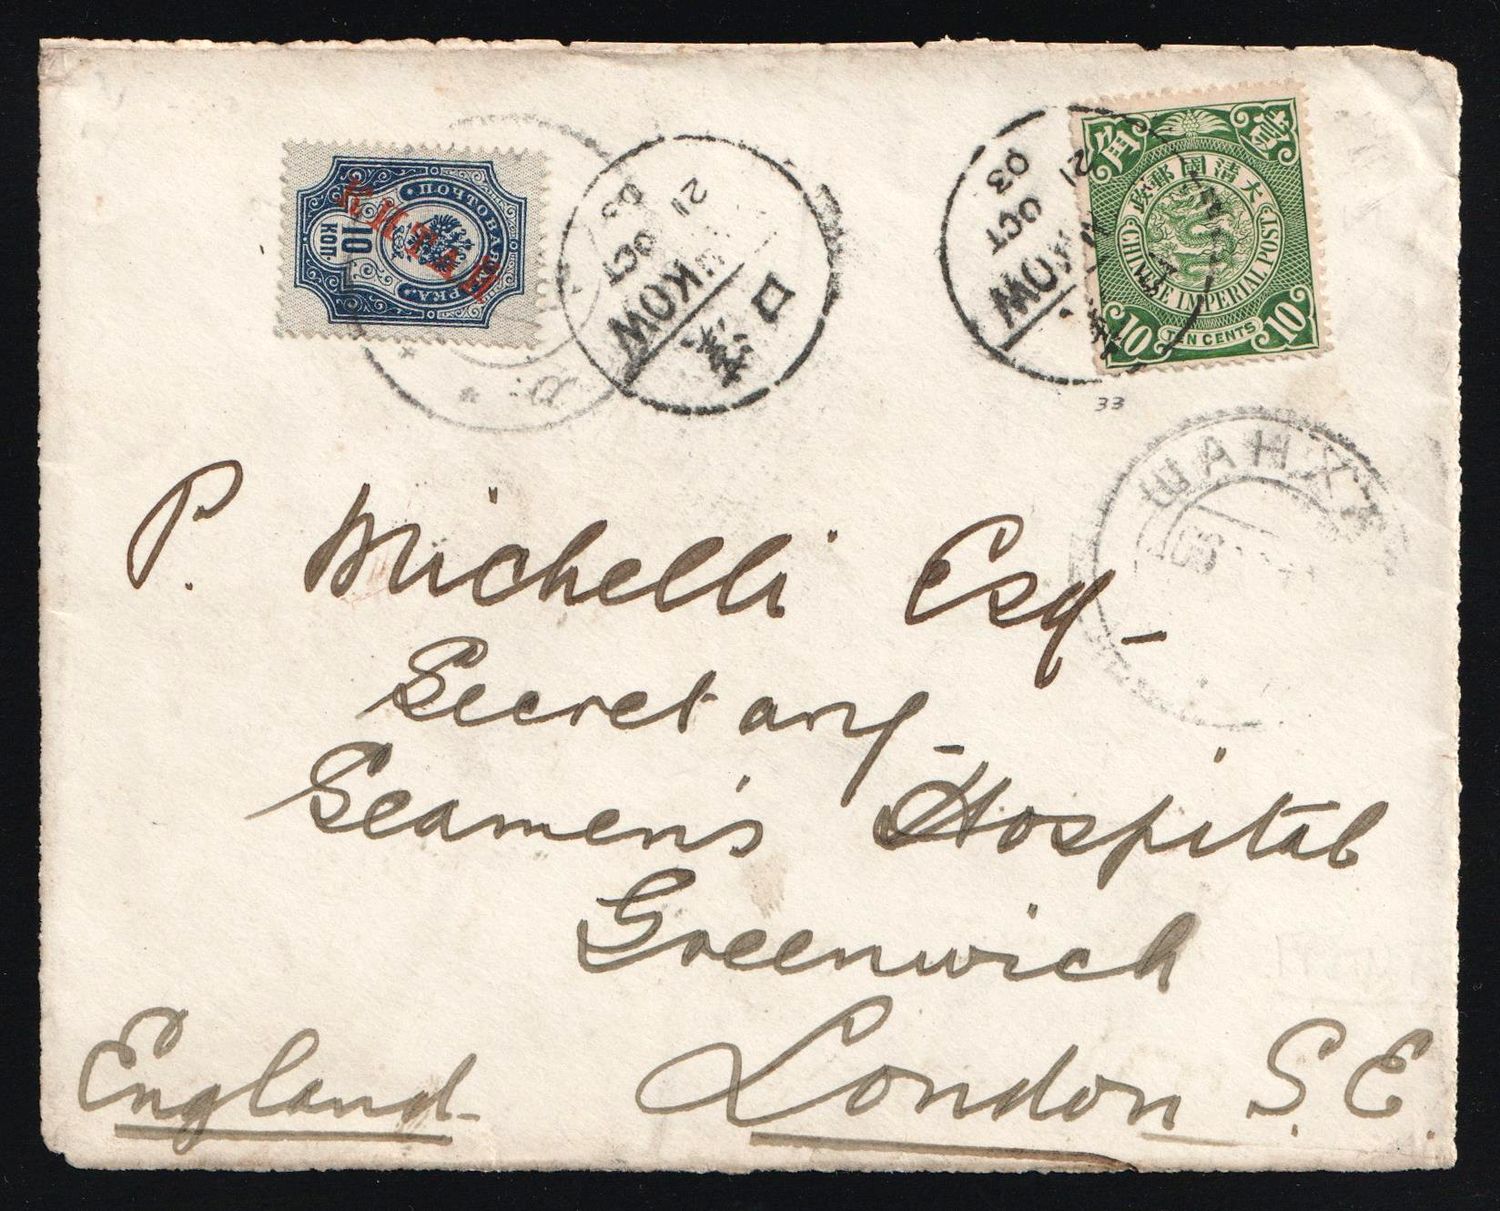 ПОЧТОВАЯ МАРКА
10 КОП.
КИТАЙ
口漢
KOW
21
OCT
03
KOW
21
OCT
03
角壹
大清國郵政
CHINESE IMPERIAL POST
10 TEN CENTS 10
33
ШАНХ
P. Michelli Esq-
Secretary-
Seamen's Hospital
Greenwich
London S.E.
England-